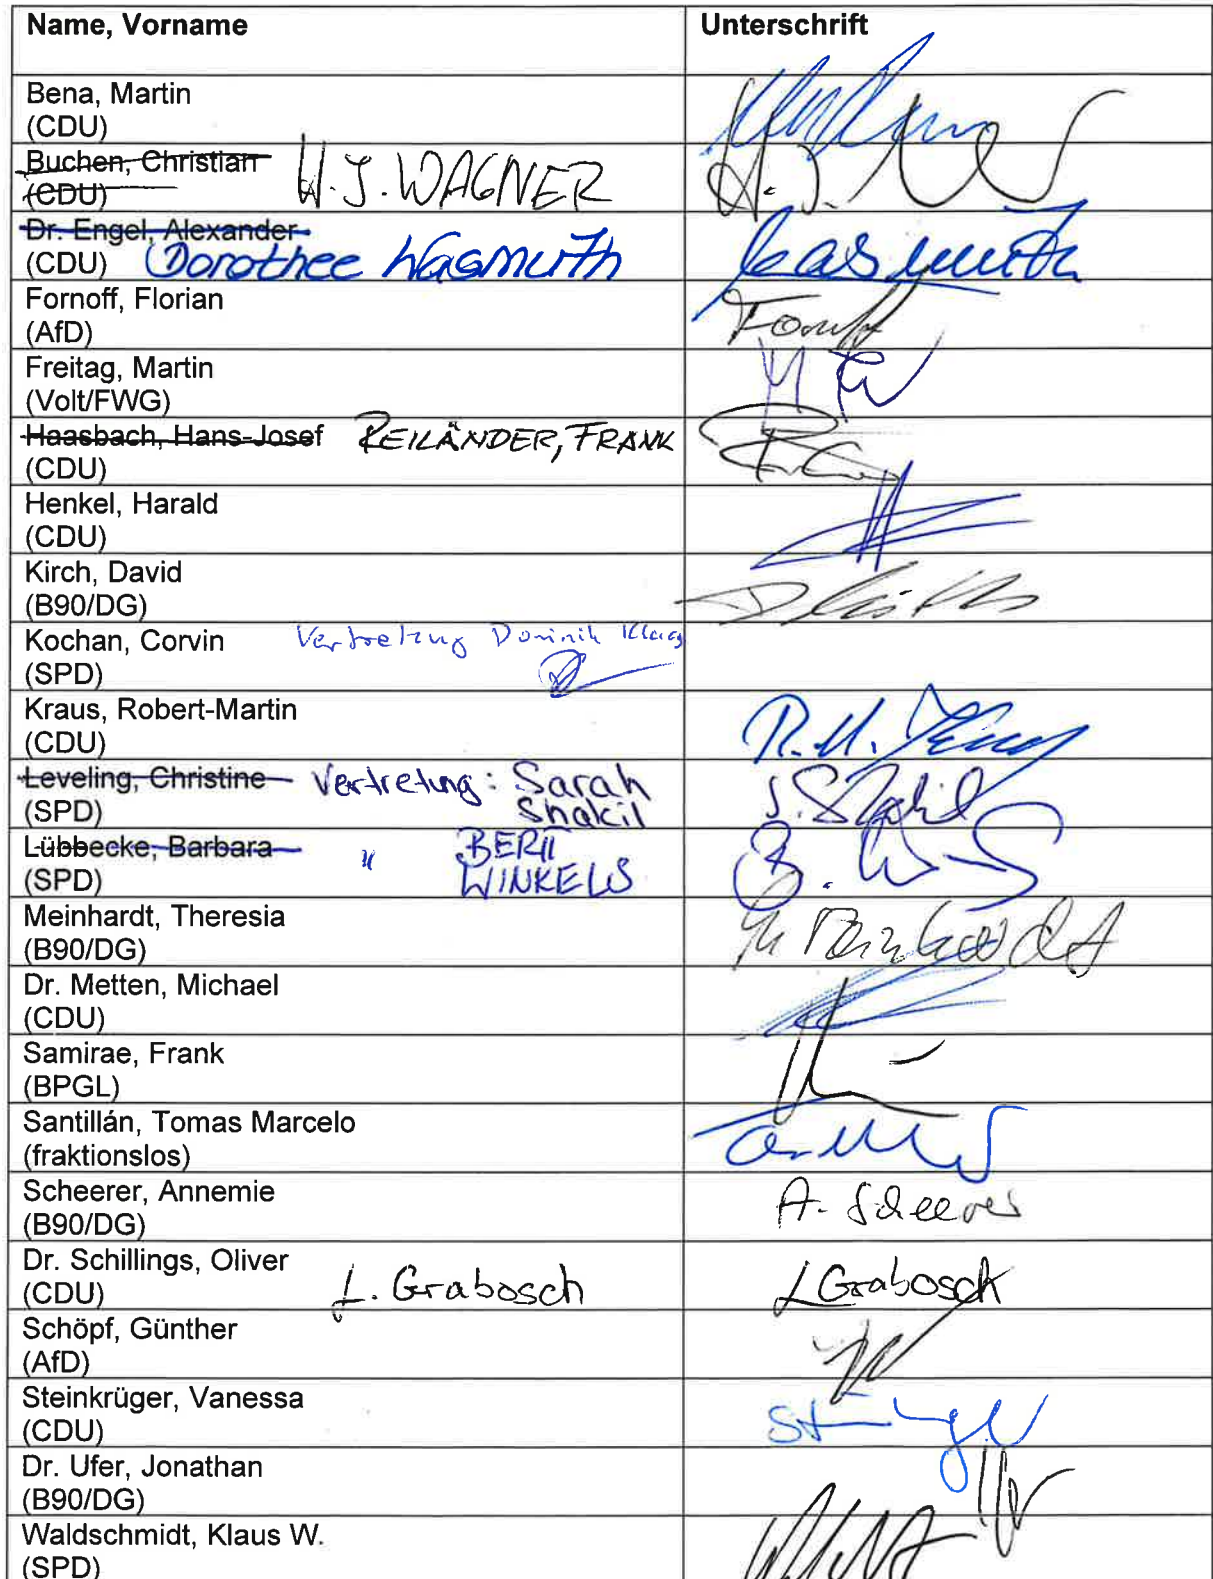 Name, Vorname Unterschrift
Bena, Martin
(CDU)
Buchen, Christian H.J. WAGNER
(CDU)
Dr. Engel, Alexander
(CDU) Dorothee Wasmuth Wasmuth
Fornoff, Florian
(AfD) Fornoff
Freitag, Martin
(Volt/FWG)
Haasbach, Hans-Josef REILÄNDER, FRANK
(CDU)
Henkel, Harald
(CDU)
Kirch, David
(B90/DG)
Kochan, Corvin Vertretung Dominik Klaas
(SPD)
Kraus, Robert-Martin
(CDU) R.M. Kraus
Leveling, Christine Vertretung: Sarah
(SPD) Shakil S. Shakil
Lübbecke, Barbara " BERIT
(SPD) WINKELS
Meinhardt, Theresia
(B90/DG) Meinhardt
Dr. Metten, Michael
(CDU)
Samirae, Frank
(BPGL)
Santillán, Tomas Marcelo
(fraktionslos)
Scheerer, Annemie
(B90/DG) A. Scheerer
Dr. Schillings, Oliver
(CDU) L. Grabosch L Grabosch
Schöpf, Günther
(AfD)
Steinkrüger, Vanessa
(CDU)
Dr. Ufer, Jonathan
(B90/DG)
Waldschmidt, Klaus W.
(SPD)